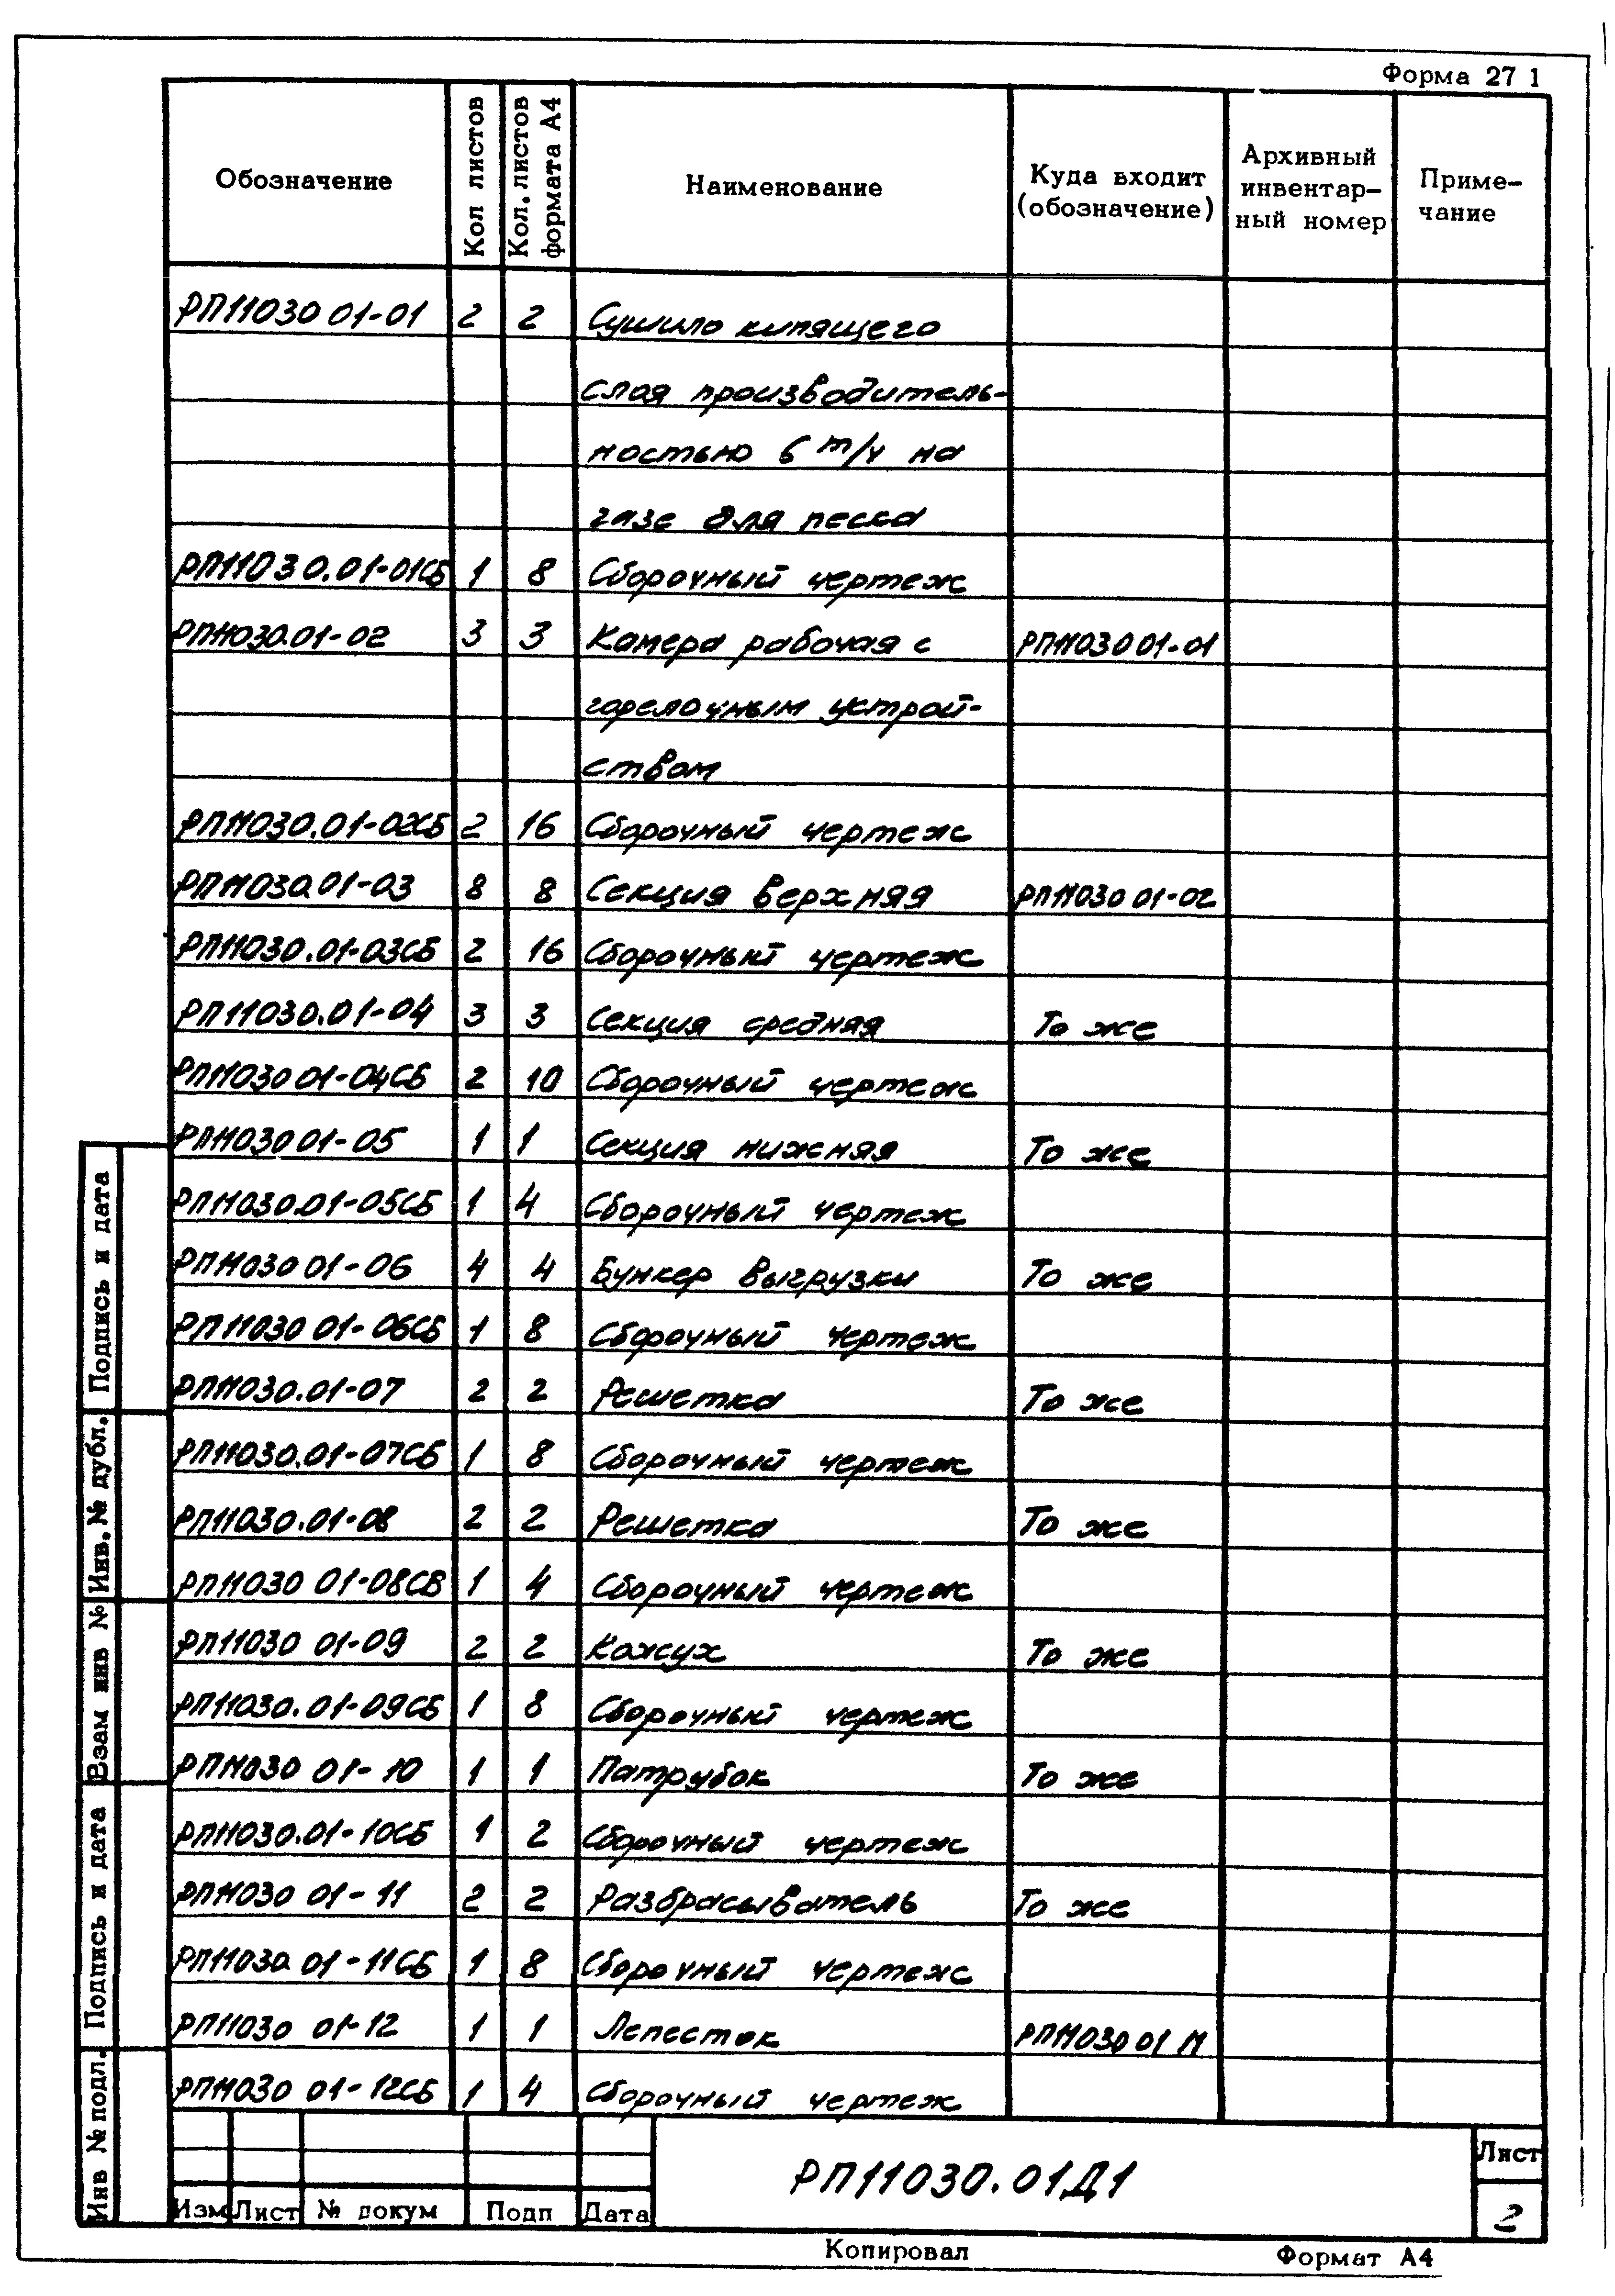 Форма 27 1
Обозначение | Кол листов | Кол. листов формата А4 | Наименование | Куда входит (обозначение) | Архивный инвентар-ный номер | Приме-чание
РП11030 01-01 2 2 Сушило кипящего
слоя производитель-
ностью 6 т/ч на
газе для песка
РП11030.01-01СБ 1 8 Сборочный чертеж
РП11030.01-02 3 3 Камера рабочая с РП11030 01-01
горелочным устрой-
ством
РП11030.01-02СБ 2 16 Сборочный чертеж
РП11030.01-03 8 8 Секция верхняя РП11030 01-02
РП11030.01-03СБ 2 16 Сборочный чертеж
РП11030.01-04 3 3 Секция средняя То же
РП11030 01-04СБ 2 10 Сборочный чертеж
РП11030 01-05 1 1 Секция нижняя То же
РП11030.01-05СБ 1 4 Сборочный чертеж
РП11030 01-06 4 4 Бункер выгрузки То же
РП11030 01-06СБ 1 8 Сборочный чертеж
РП11030.01-07 2 2 Решетка То же
РП11030.01-07СБ 1 8 Сборочный чертеж
РП11030.01-08 2 2 Решетка То же
РП11030 01-08СБ 1 4 Сборочный чертеж
РП11030 01-09 2 2 Кожух То же
РП11030.01-09СБ 1 8 Сборочный чертеж
РП11030 01-10 1 1 Патрубок То же
РП11030.01-10СБ 1 2 Сборочный чертеж
РП11030 01-11 2 2 Разбрасыватель То же
РП11030.01-11СБ 1 8 Сборочный чертеж
РП11030 01-12 1 1 Лепесток РП11030 01 11
РП11030 01-12СБ 1 4 Сборочный чертеж
Подпись и дата
Инв. № дубл.
Взам инв №
Подпись и дата
Инв № подл.
Изм Лист № докум Подп Дата
РП11030.01Д1
Лист
2
Копировал
Формат А4